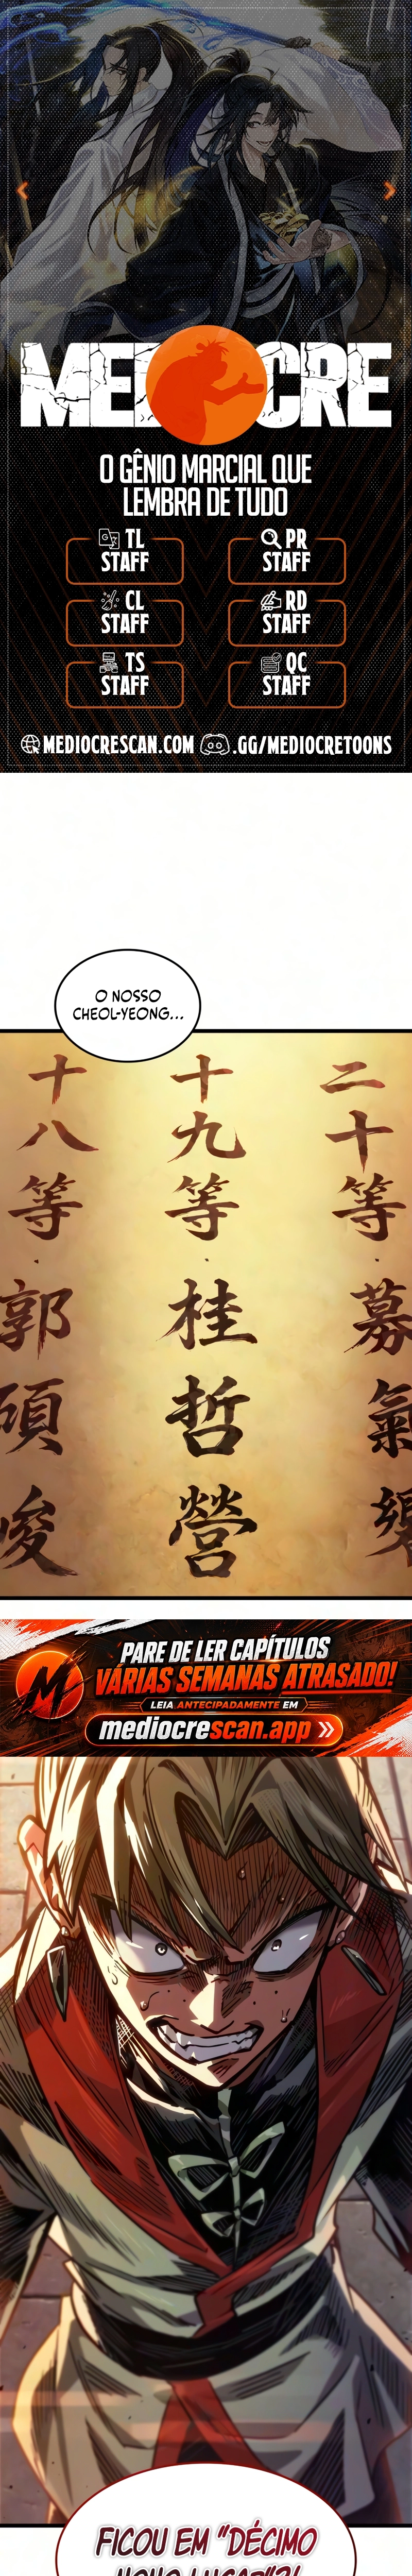 MEDIOCRE
O GÊNIO MARCIAL QUE
LEMBRA DE TUDO
TL
STAFF
PR
STAFF
CL
STAFF
RD
STAFF
TS
STAFF
QC
STAFF
MEDIOCRESCAN.COM
.GG/MEDIOCRETOONS
O NOSSO
CHEOL-YEONG...
二十等·募氣響
十九等·桂哲營
十八等·郭碩峻
PARE DE LER CAPÍTULOS
VÁRIAS SEMANAS ATRASADO!
LEIA ANTECIPADAMENTE EM
mediocrescan.app »
FICOU EM "DÉCIMO
NONO LUGAR"?!